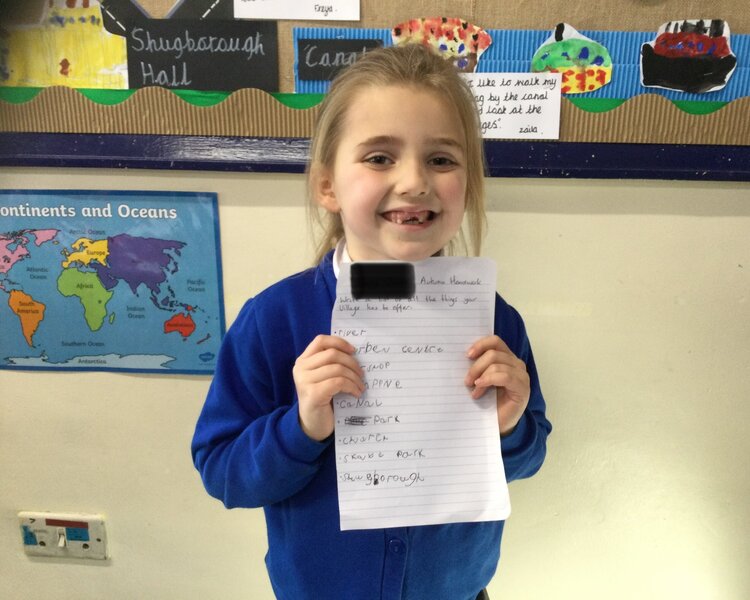 Enzya
Shugborough
Hall
Canal
like to walk my
by the canal
look at the
Zaila
Continents and Oceans
Arctic Ocean
Europe
Atlantic
Ocean
Africa
Pacific
Ocean
South
America
Indian
Ocean
Australia
Southern Ocean
Antarctica
Autumn Homework
Write a list of all the things your
Village has to offer.
• river
centre
• canal
• park
• church
park
• Shugborough